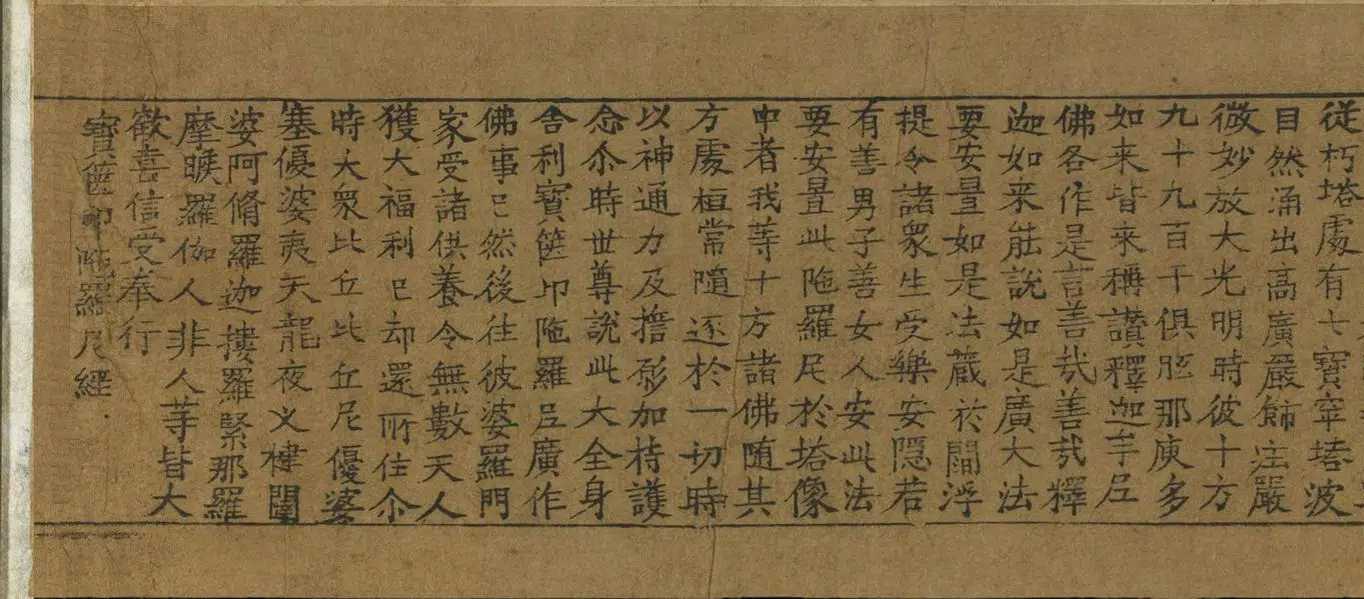 從朽塔處有七寶窣堵波
自然涌出高廣嚴飾庄嚴
微妙放大光明時彼十方
九十九百千俱胝那庾多
如来皆来稱讚釋迦牟尼
佛各作是言善㢤善㢤釋
迦如来能說如是廣大法
要安置如是法蔵於閻浮
提令諸衆生受樂安隱若
有善男子善女人安此法
要安置此陁羅尼於塔像
中者我等十方諸佛随其
方處桓常隨逐於一切時
以神通力及擔𢒎加持護
念尒時世尊說此大全身
舎利寶篋印陁羅尼廣作
佛事已然後往彼婆羅門
家受諸供養令無數天人
獲大福利已却還所住尒
時大衆比丘比丘尼優婆
塞優婆夷天龍夜叉犍闥
婆阿脩羅迦摟羅緊那羅
摩睺羅伽人非人等皆大
歡喜信受奉行
寶篋印陁羅尼經